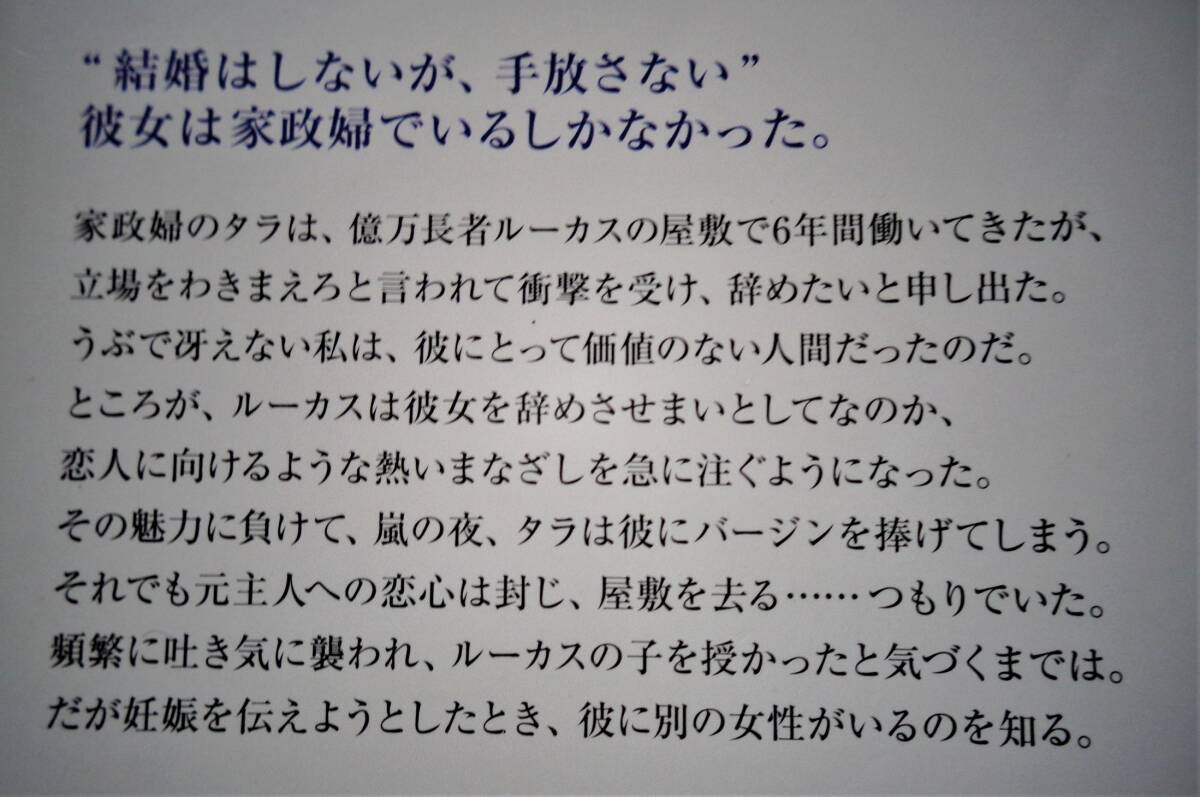 “結婚はしないが、手放さない”
彼女は家政婦でいるしかなかった。
家政婦のタラは、億万長者ルーカスの屋敷で6年間働いてきたが、
立場をわきまえろと言われて衝撃を受け、辞めたいと申し出た。
うぶで冴えない私は、彼にとって価値のない人間だったのだ。
ところが、ルーカスは彼女を辞めさせまいとしてなのか、
恋人に向けるような熱いまなざしを急に注ぐようになった。
その魅力に負けて、嵐の夜、タラは彼にバージンを捧げてしまう。
それでも元主人への恋心は封じ、屋敷を去る……つもりでいた。
頻繁に吐き気に襲われ、ルーカスの子を授かったと気づくまでは。
だが妊娠を伝えようとしたとき、彼に別の女性がいるのを知る。